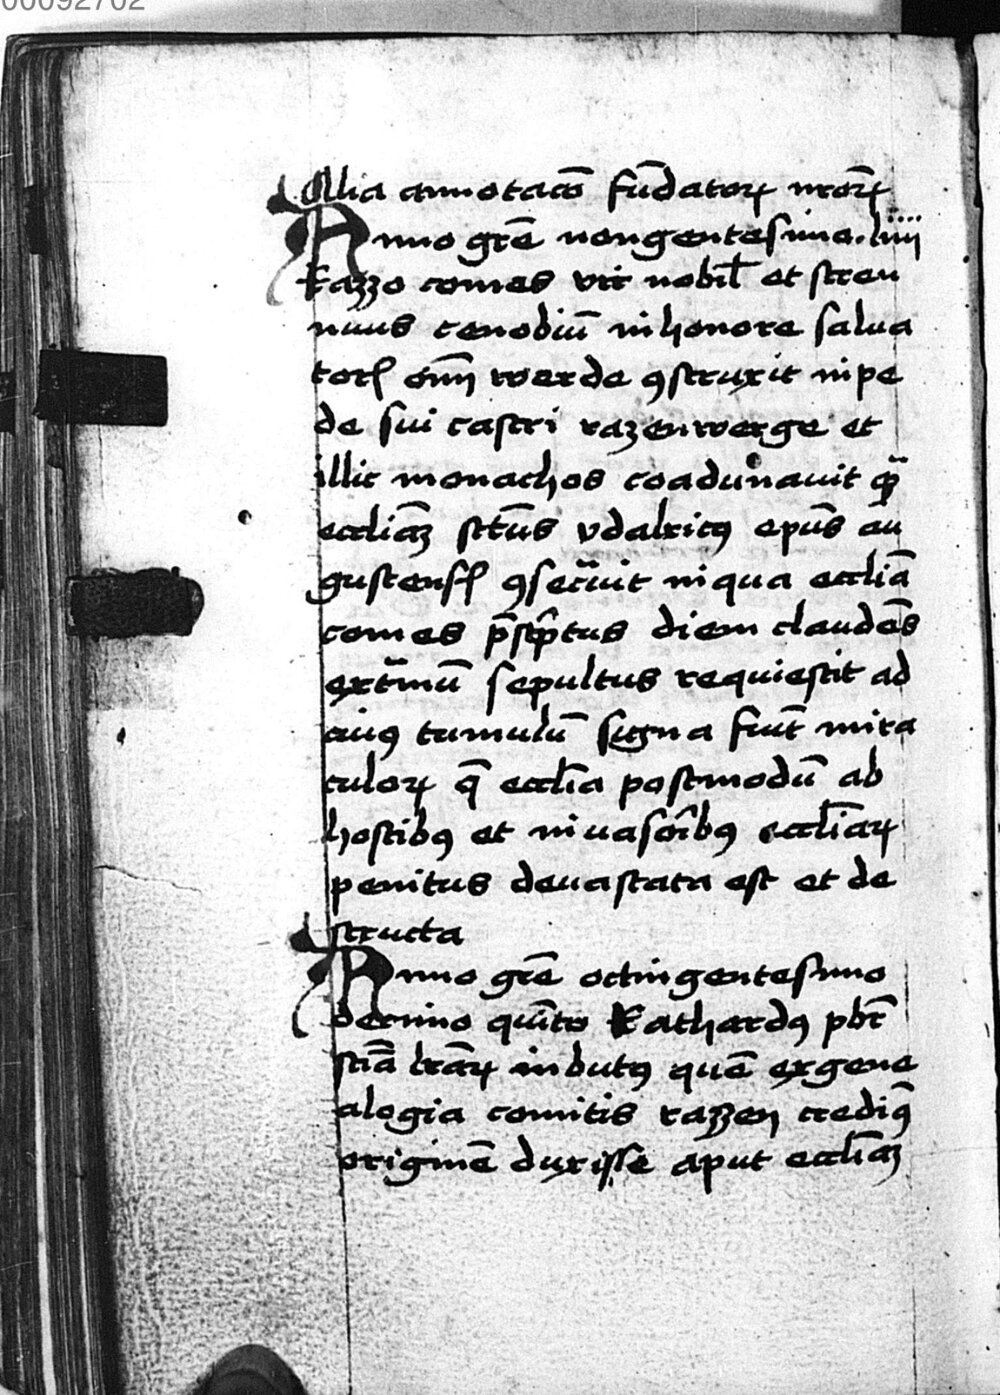 00092702
Alia annotacō fūdatoꝝ nrōꝝ
Anno grē nongentesimo .liiii
Razzo comes vir nobil̄ et stren
nuus cenobiū in honore salua
toris om̄i werde ꝯstruxit in pe
de sui castri razenwerge et
illic monachos coadunauit qm̄
eccliā sctūs vdalricꝰ epūs au
gustensꝭ ꝯsec̄uit in qua eccliā
comes p̄sc̄ptus diem claudēs
extm̄ū sepultus requiescit ad
cuiꝰ tumulū signa fiūt mira
culoꝝ q̄ ecclīa postmodū ab
hostibꝰ et inuasoībꝰ ecclīaꝝ
penitus deuastata est et de
structa
Anno grē octingentesimo
decimo quīto Rathardꝰ pbr̄
sciā lrāꝝ inbutꝰ quē ex gene
alogia comitis razzen crediꝰ
originē duxisse aput eccliāꝫ